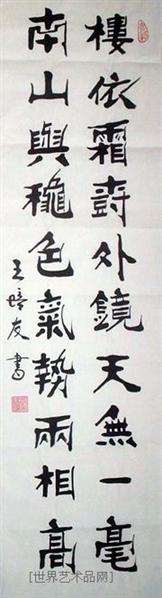 樓依霜樹外鏡天無一毫
南山與秋色氣勢兩相高
王培友書
[世界艺术品网]